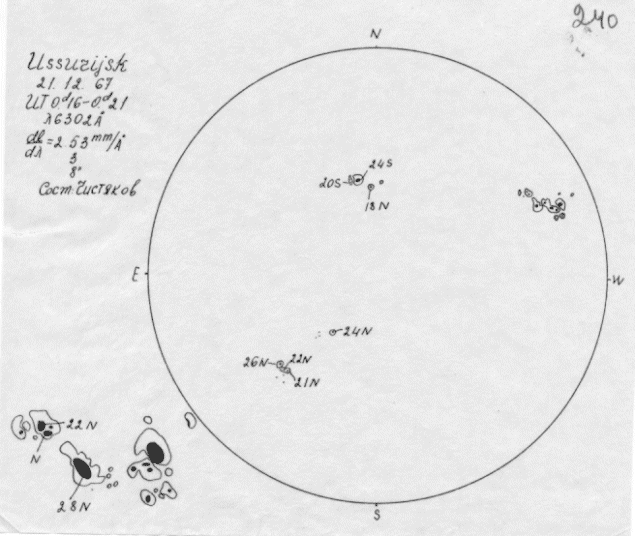 240
Ussurijsk
21.12.67
UT 0.ᵈ16-0.ᵈ21
λ6302Å
dl/dλ = 2.53 mm/Å
3
8"
Сост. Чистяков
N
24S
20S
18N
E
W
24N
26N
22N
21N
22N
N
28N
S